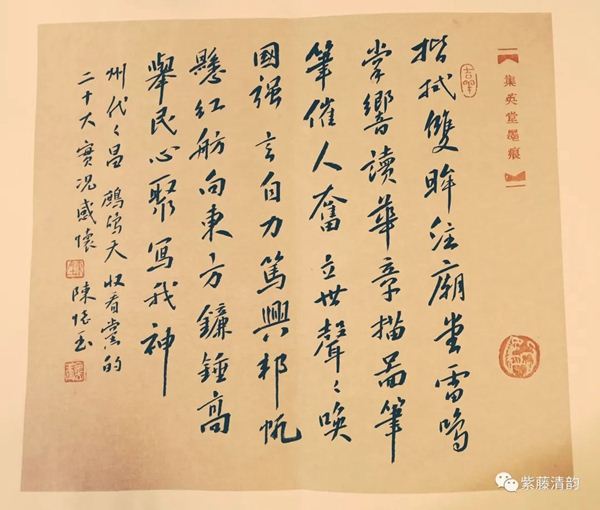 集英堂墨痕
揩拭雙眸注廟堂雷鳴
掌響讀華章描啚筆
筆催人奮立世聲〻喚
國强言自力篤興邦帆
懸紅舫向東方鐮錘高
舉民心聚寫我神
州代〻昌 鷓鴣天 收看黨的
二十大實況感懷 陳
紫藤清韵